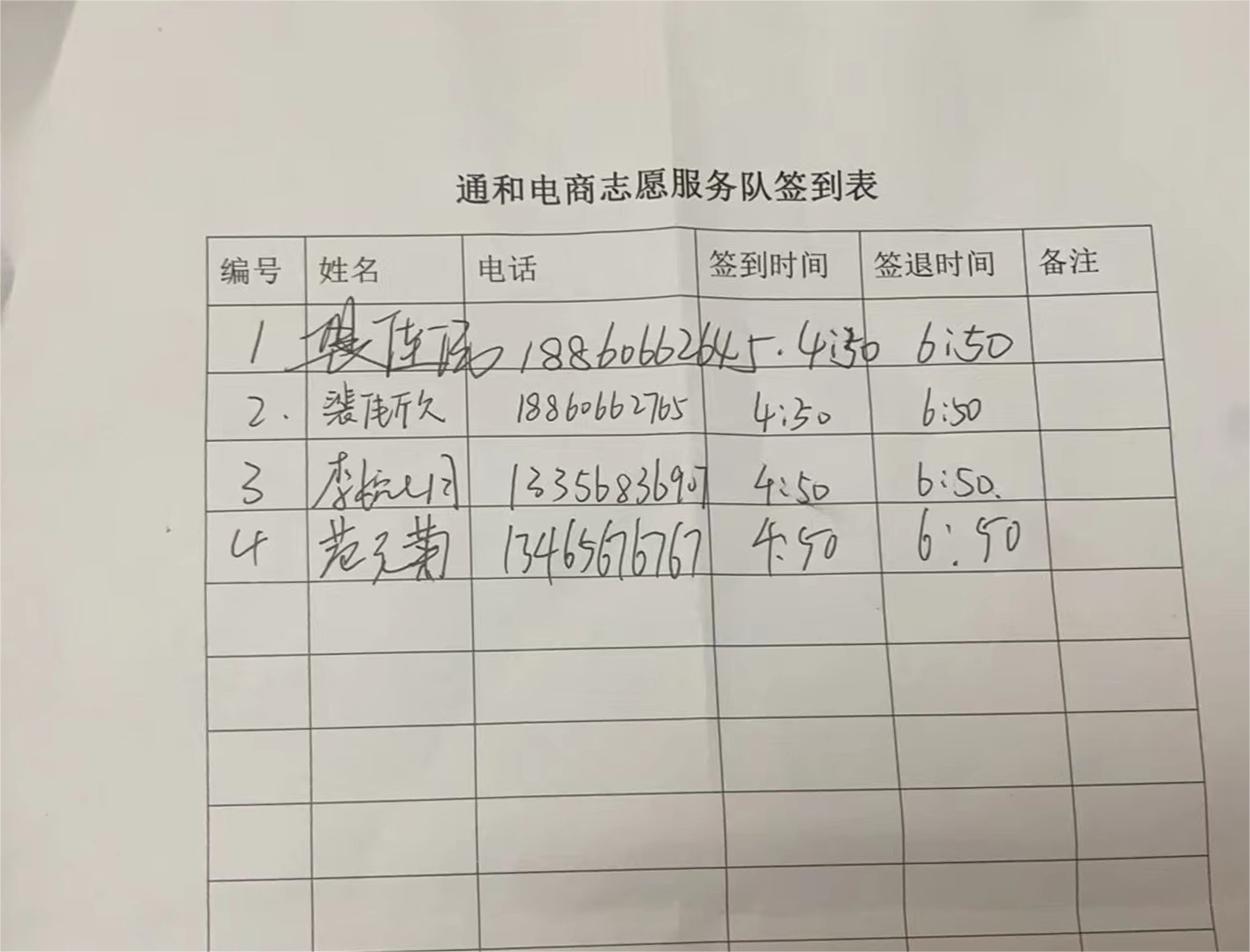 通和电商志愿服务队签到表
编号 姓名 电话 签到时间 签退时间 备注
1 18860662645. 4:50 6:50
2. 裴 18860662765 4:50 6:50
3 李 13356836907 4:50 6:50.
4 范元菊 13465676767 4:50 6:50